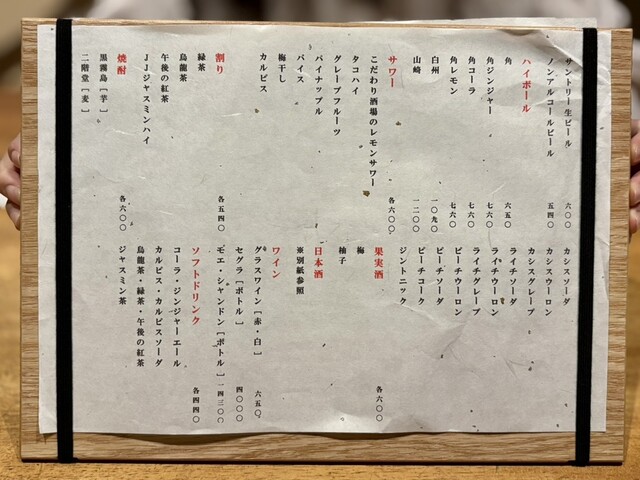 サントリー生ビール 六〇〇
ノンアルコールビール 五四〇
ハイボール
角 六五〇
角ジンジャー 七六〇
角コーラ 七六〇
角レモン 七六〇
白州 一〇九〇
山崎 一二〇〇
サワー 各六〇〇
こだわり酒場のレモンサワー
タコハイ
グレープフルーツ
パイナップル
バイス
梅干し
カルピス
割り 各五四〇
緑茶
烏龍茶
午後の紅茶
JJジャスミンハイ
焼酎 各六〇〇
黒霧島[芋]
二階堂[麦]
カシスソーダ
カシスウーロン
カシスグレープ
ライチソーダ
ライチウーロン
ライチグレープ
ピーチウーロン
ピーチソーダ
ピーチコーク
ジントニック
果実酒 各六〇〇
梅
柚子
日本酒
※別紙参照
ワイン
グラスワイン[赤・白] 六五〇
セグラ[ボトル] 四〇〇〇
モエ・シャンドン[ボトル] 一四三〇〇
ソフトドリンク 各四四〇
コーラ・ジンジャーエール
カルピス・カルピスソーダ
烏龍茶・緑茶・午後の紅茶
ジャスミン茶